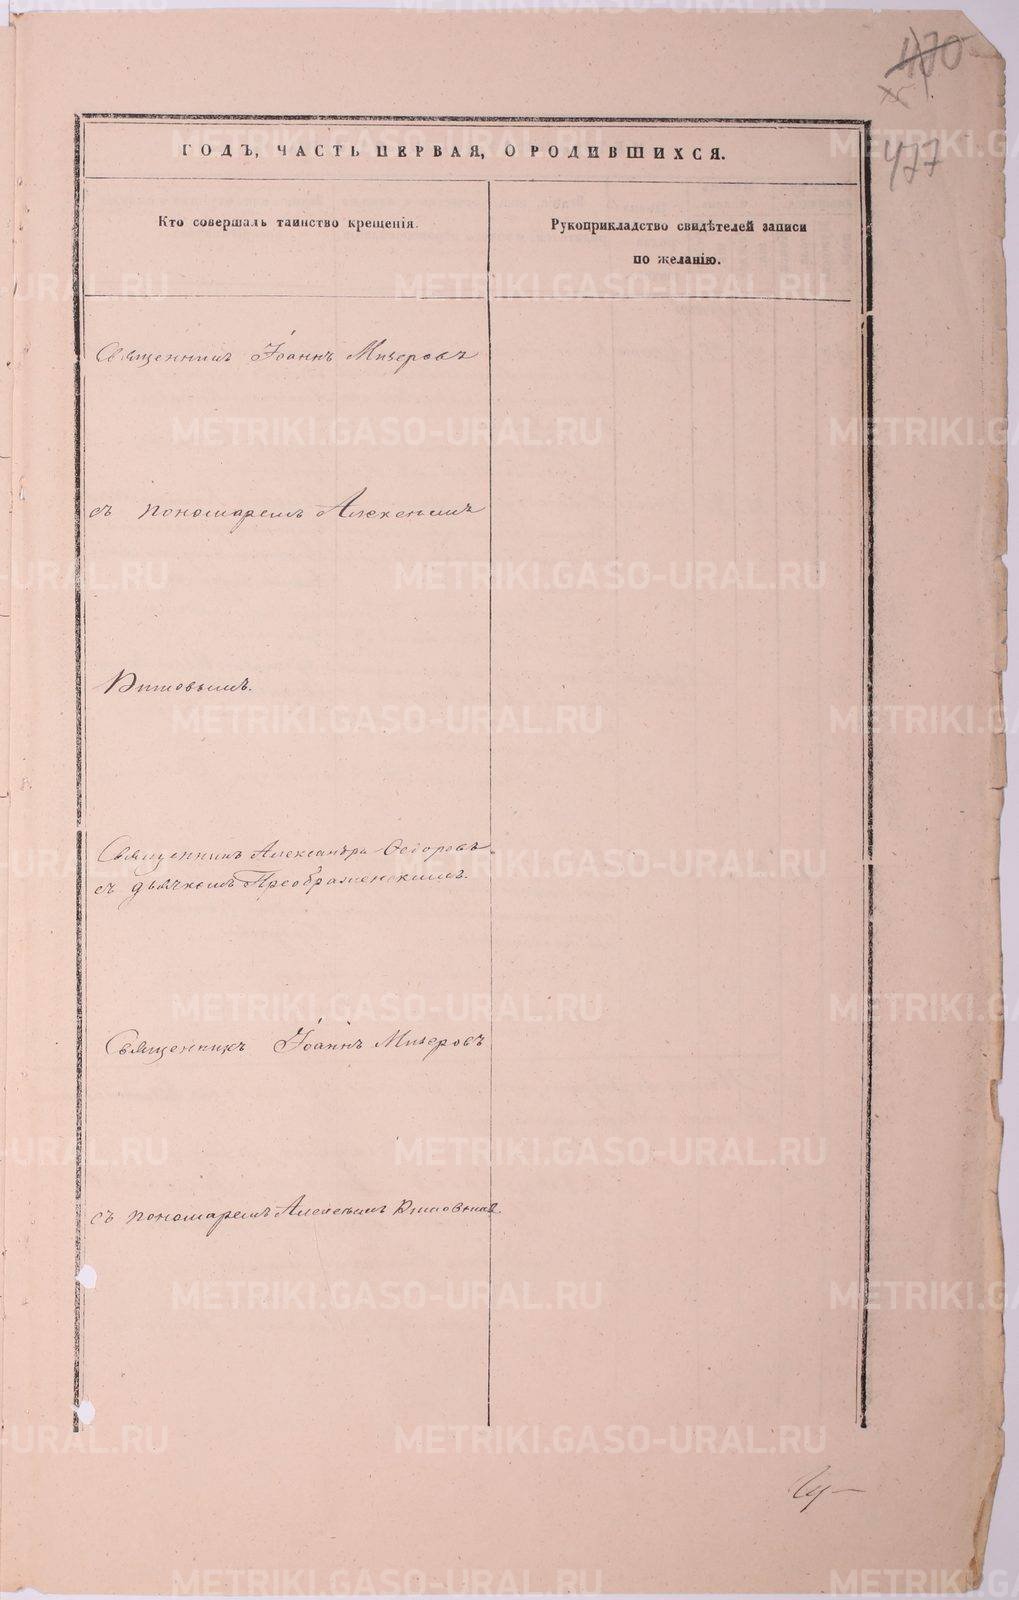 470
477
ГОДЪ, ЧАСТЬ ПЕРВАЯ, О РОДИВШИХСЯ.
Кто совершалъ таинство крещенія.
Рукоприкладство свидѣтелей записи
по желанію.
Священникъ Іоаннъ Мизеровъ
съ пономаремъ Алексѣемъ
Священникъ Александръ Ѳедоровъ
съ дьячкомъ Преображенскимъ.
Священникъ Іоаннъ Мизеровъ
съ пономаремъ Алексѣемъ
METRIKI.GASO-URAL.RU